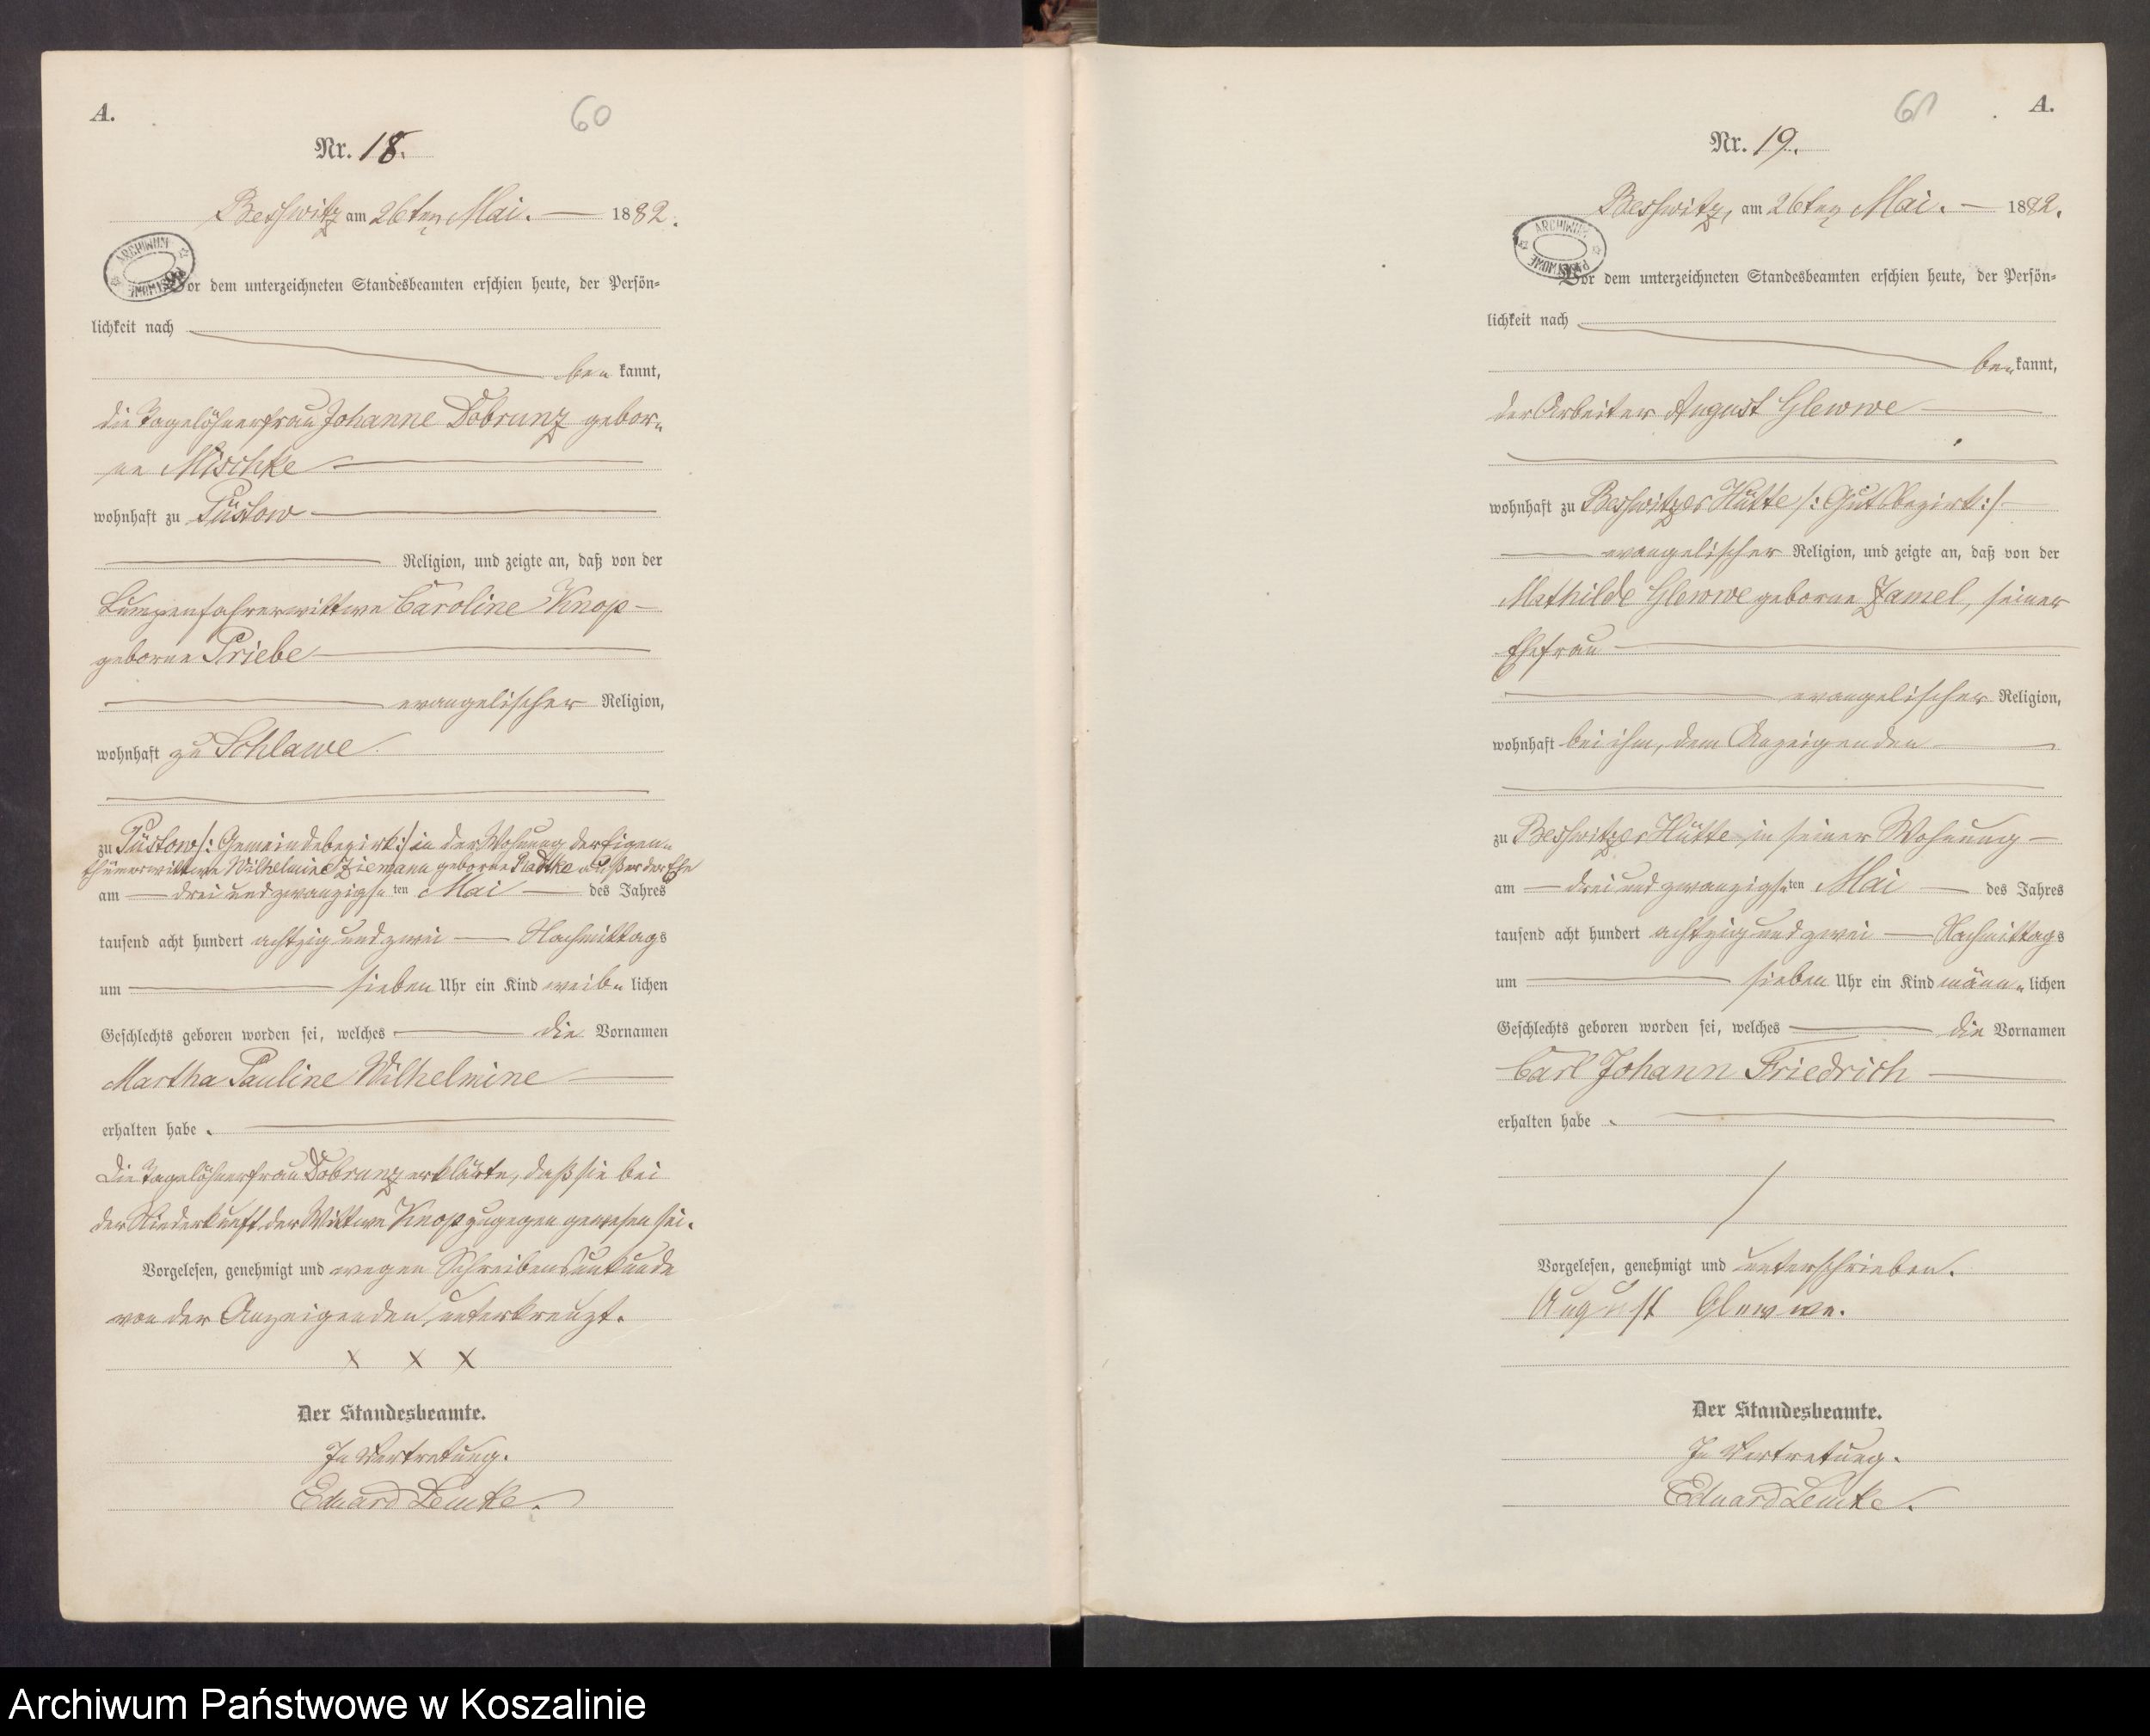 A.
60
Nr. 18.
Beßwitz am 26ten Mai. 1882.
ARCHIWUM PAŃSTWOWE
Vor dem unterzeichneten Standesbeamten erschien heute, der Persön-
lichkeit nach
be- kannt,
die Tagelöhnerfrau Johanne Dobrunz gebor-
ne Mischke
wohnhaft zu Püstow
Religion, und zeigte an, daß von der
Lumpenfahrerwittwe Caroline Knop
geborne Priebe
evangelischer Religion,
wohnhaft zu Schlawe
zu Püstow /: Gemeindebezirk :/ in der Wohnung der Eigen-
thümerwittwe Wilhelmine Ziemann geborne Radtke außer der Ehe
am drei und zwanzigsten Mai des Jahres
tausend acht hundert achtzig und zwei Nachmittags
um sieben Uhr ein Kind weib- lichen
Geschlechts geboren worden sei, welches die Vornamen
Martha Pauline Wilhelmine
erhalten habe.
Die Tagelöhnerfrau Dobrunz erklärte, daß sie bei
der Niederkunft der Wittwe Knop zugegen gewesen sei.
Vorgelesen, genehmigt und wegen Schreibensunkunde
von der Anzeigenden unterkreuzt.
X X X
Der Standesbeamte.
In Vertretung.
Eduard Lemke.
61
A.
Nr. 19.
Beßwitz, am 26ten Mai. 1882.
ARCHIWUM PAŃSTWOWE
Vor dem unterzeichneten Standesbeamten erschien heute, der Persön-
lichkeit nach
be- kannt,
der Arbeiter August Glewwe
wohnhaft zu Beßwitzer Hütte /: Gutsbezirk :/
evangelischer Religion, und zeigte an, daß von der
Mathilde Glewwe geborne Zamel, seiner
Ehefrau
evangelischer Religion,
wohnhaft bei ihm, dem Anzeigenden
zu Beßwitzer Hütte in seiner Wohnung
am drei und zwanzigsten Mai des Jahres
tausend acht hundert achtzig und zwei Nachmittags
um sieben Uhr ein Kind männ- lichen
Geschlechts geboren worden sei, welches die Vornamen
Carl Johann Friedrich
erhalten habe.
Vorgelesen, genehmigt und unterschrieben.
August Glewwe.
Der Standesbeamte.
In Vertretung.
Eduard Lemke.
Archiwum Państwowe w Koszalinie